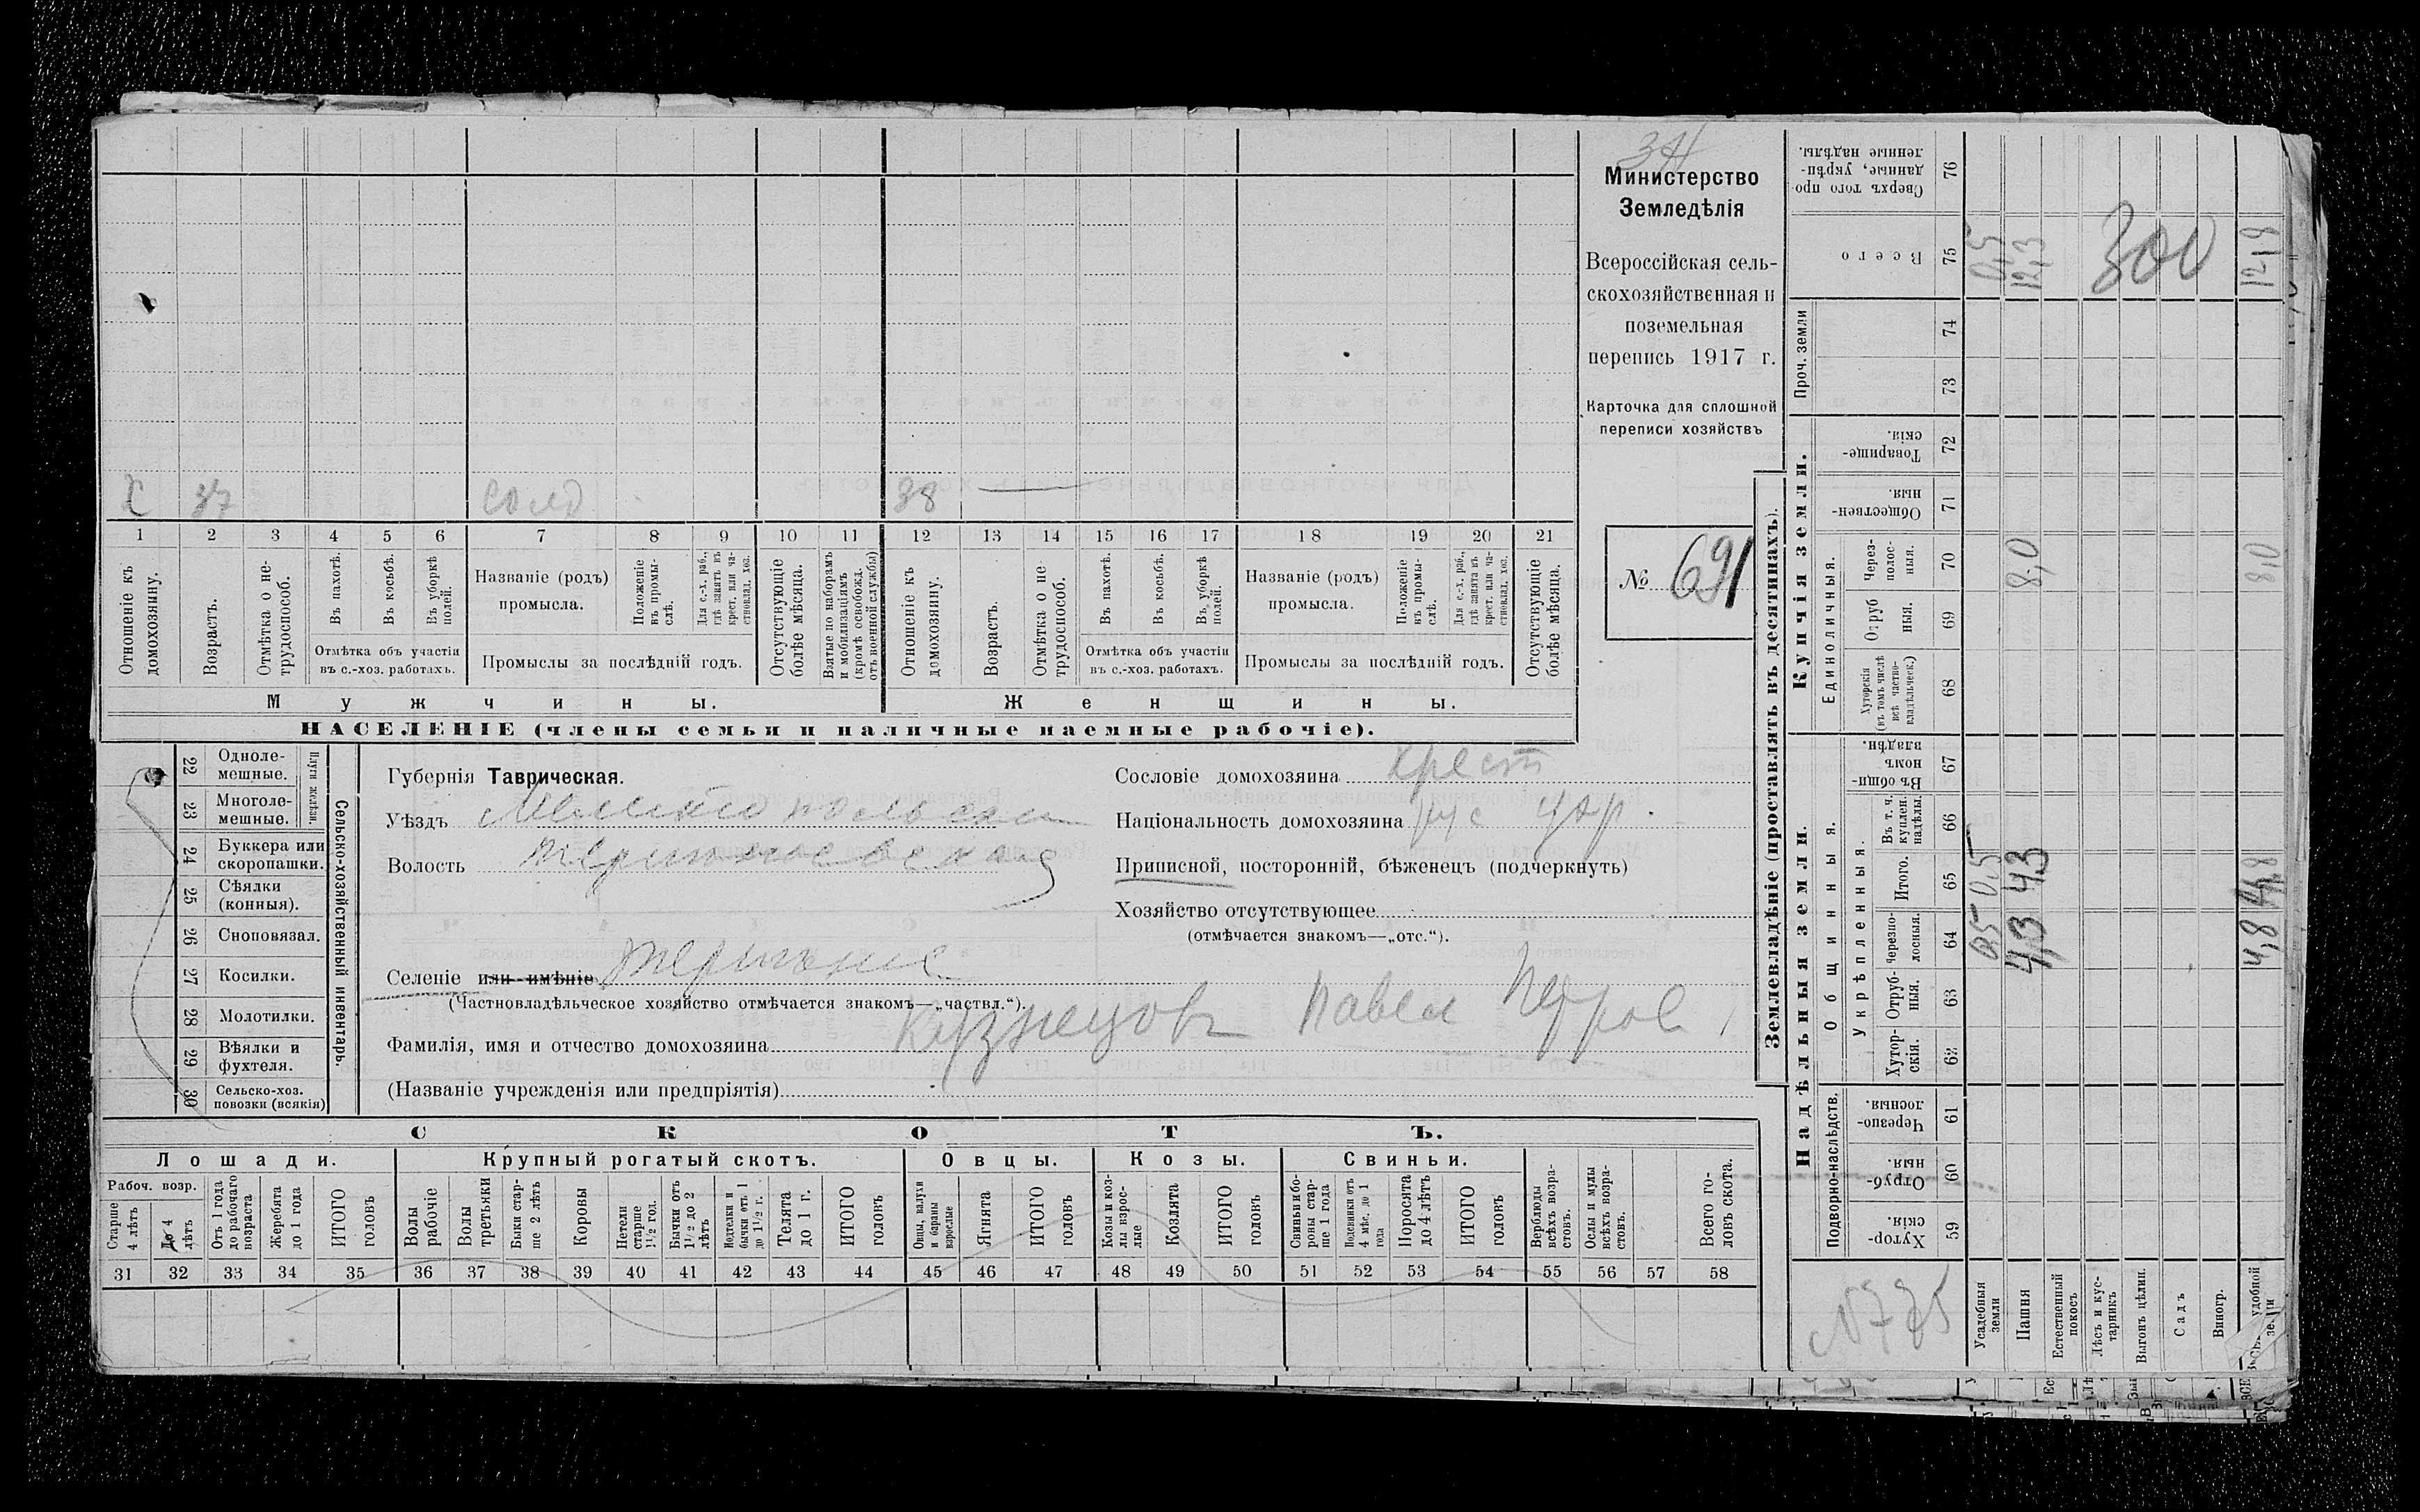 Министерство
Земледѣлія
Всероссійская сель-
скохозяйственная и
поземельная
перепись 1917 г.
Карточка для сплошной
переписи хозяйствъ
№ 691
Х 37 солд 38
1 2 3 4 5 6 7 8 9 10 11 12 13 14 15 16 17 18 19 20 21
Отношеніе къ домохозяину.
Возрастъ.
Отмѣтка о не-трудоспособ.
Въ пахотѣ.
Въ косьбѣ.
Въ уборкѣ полей.
Отмѣтка объ участіи
въ с.-хоз. работахъ.
Названіе (родъ)
промысла.
Положеніе въ промы-слѣ.
Для с.-х. раб., гдѣ занятъ въ крест. или ча-стновлад. хоз.
Промыслы за послѣдній годъ.
Отсутствующіе болѣе мѣсяца.
Взятые по наборамъ и мобилизаціямъ (кромѣ освобожд. отъ военной службы)
Отношеніе къ домохозяину.
Возрастъ.
Отмѣтка о не-трудоспособ.
Въ пахотѣ.
Въ косьбѣ.
Въ уборкѣ полей.
Отмѣтка объ участіи
въ с.-хоз. работахъ.
Названіе (родъ)
промысла.
Положеніе въ промы-слѣ.
Для с.-х. раб., гдѣ занята въ крест. или ча-стновлад. хоз.
Промыслы за послѣдній годъ.
Отсутствующіе болѣе мѣсяца.
Мужчины.
Женщины.
НАСЕЛЕНІЕ (члены семьи и наличные наемные рабочіе).
Сельско-хозяйственный инвентарь.
Плуги желѣзн.
22 Одноле-мешные.
23 Многоле-мешные.
24 Буккера или скоропашки.
25 Сѣялки (конныя).
26 Сноповязал.
27 Косилки.
28 Молотилки.
29 Вѣялки и фухтеля.
30 Сельско-хоз. повозки (всякія)
Губернія Таврическая.
Уѣздъ
Волость
Селеніе или имѣніе
(Частновладѣльческое хозяйство отмѣчается знакомъ—„частвл.“).
Фамилія, имя и отчество домохозяина Кузнецовъ Павел Петров
(Названіе учрежденія или предпріятія)
Сословіе домохозяина крест
Національность домохозяина рус укр.
Приписной, посторонній, бѣженец (подчеркнуть)
Хозяйство отсутствующее
(отмѣчается знакомъ—„отс.“).
СКОТЪ.
Лошади.
Крупный рогатый скотъ.
Овцы.
Козы.
Свиньи.
Рабоч. возр.
Старше 4 лѣтъ
До 4 лѣтъ
Отъ 1 года до рабочаго возраста
Жеребята до 1 года
ИТОГО головъ
Волы рабочіе
Волы третьяки
Быки стар-ше 2 лѣтъ
Коровы
Нетели старше 1½ год.
Бычки отъ 1½ до 2 лѣтъ
Нетелки и бычки отъ 1 до 1½ г.
Телята до 1 г.
ИТОГО головъ
Овцы, валухи и бараны взрослые
Ягнята
ИТОГО головъ
Козы и коз-лы взрос-лые
Козлята
ИТОГО головъ
Свиньи и бо-ровы стар-ше 1 года
Подсвинки отъ 4 мѣс. до 1 года
Поросята до 4 лѣтъ
ИТОГО головъ
Верблюды всѣхъ возра-стовъ.
Ослы и мулы всѣхъ возра-стовъ.
Всего го-ловъ скота.
31 32 33 34 35 36 37 38 39 40 41 42 43 44 45 46 47 48 49 50 51 52 53 54 55 56 57 58
Землевладѣніе (проставлять въ десятинахъ).
Купчія земли.
Проч. земли
Единоличныя.
Надѣльныя земли.
Общинныя.
Укрѣпленныя.
Подворно-наслѣдств.
Сверхъ того про-данные, укрѣп-ленные надѣлы. 76
Всего 75 0,5 12,3 300 12,8
74
73
Товарище-скія. 72
Обществен-ныя. 71
Через-полос-ныя. 70 8,0 8,0
Отруб-ныя. 69
Хуторскія (въ томъ числѣ всѣ частно-владѣльческ.) 68
Въ общи-номъ владѣн. 67
Въ т. ч. куплен. надѣлы. 66
Итого. 65 0,5 4,3 4,8
Черезпо-лосныя. 64 0,5 4,3 4,8
Отруб-ныя. 63
Хутор-скія. 62
Черезпо-лосныя. 61
Отруб-ныя. 60
Хутор-скія. 59
Усадебныя земли
Пашня
Естественный покосъ
Лѣсъ и кус-тарникъ
Выгонъ цѣлин.
Садъ
Виногр.
удобной